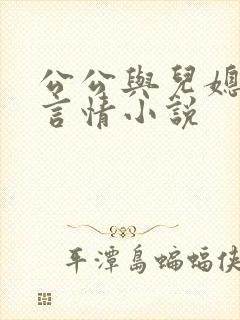 公公與兒媳
言情小說
平潭島蝙蝠俠